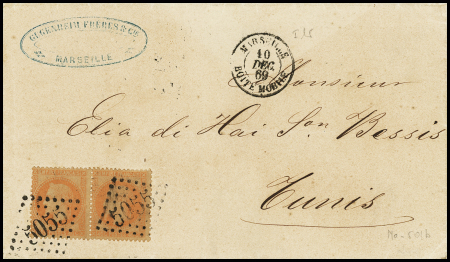 GUGENHEIM FRERES & Cie
MARSEILLE
MARSEILLE
10
DEC.
69
BOITE MOBILE
Monsieur
Elia di Hai Son Bessis
Tunis
5055
5055